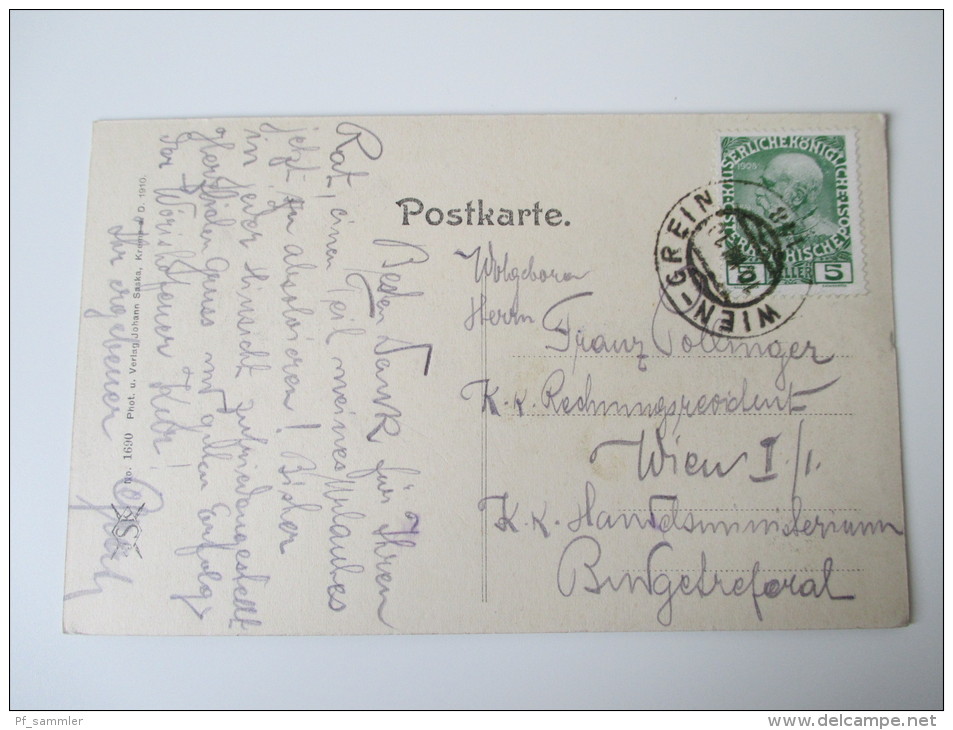 Postkarte.
Besten Dank für Ihren
Rat, einen Teil meines Urlaubes
jetzt zu absolvieren! Bisher
in jeder Hinsicht zufriedengestellt
herzlichen Gruss mit gutem Erfolg
der Wörishofener Kur!
Ihr ergebener
Wolgeboren
Herrn
Franz Pollinger
K.K. Rechnungsrevident
Wien I/1.
K.K. Handelsministerium
No. 1690 Phot. u. Verlag Johann Saska, Krems a. D. 1910.
WIEN-GREIN
1908
5
Pf_sammler
www.delcampe.net